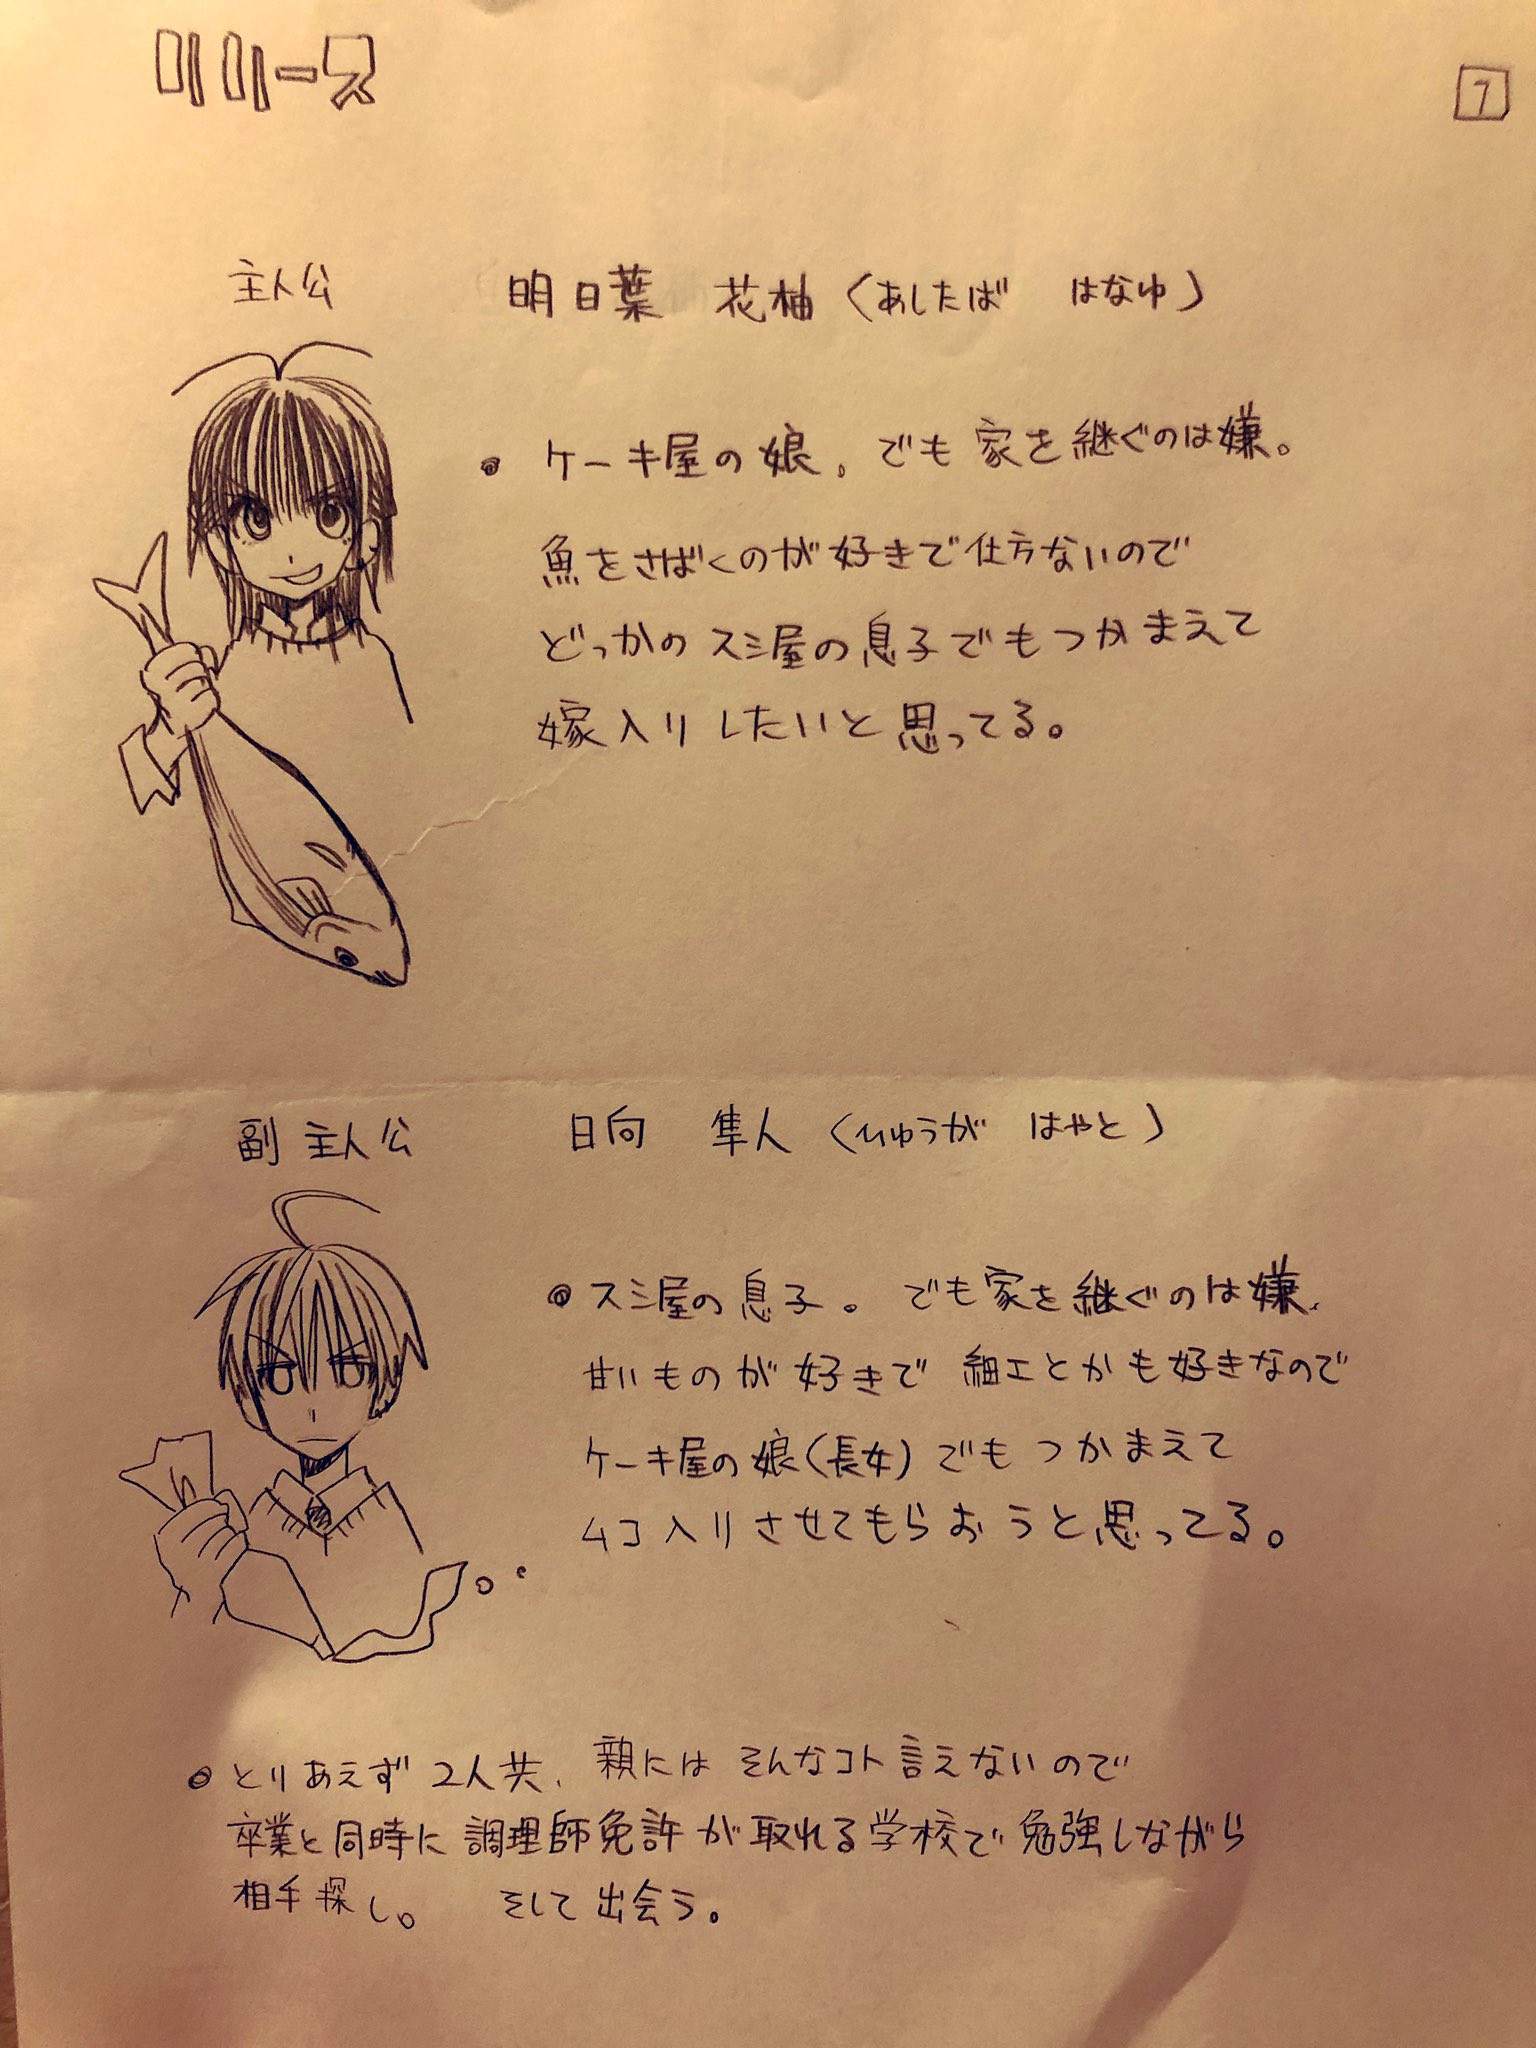 リリース
7
主人公 明日葉 花柚(あしたば はなゆ)
・ケーキ屋の娘。でも家を継ぐのは嫌。
魚をさばくのが好きで仕方ないので
どっかのスシ屋の息子でもつかまえて
嫁入りしたいと思ってる。
副主人公 日向 隼人(ひゅうが はやと)
・スシ屋の息子。でも家を継ぐのは嫌、
甘いものが好きで細工とかも好きなので
ケーキ屋の娘(長女)でもつかまえて
ムコ入りさせてもらおうと思ってる。
・とりあえず2人共、親にはそんなコト言えないので
卒業と同時に調理師免許が取れる学校で勉強しながら
相手探し。 そして出会う。